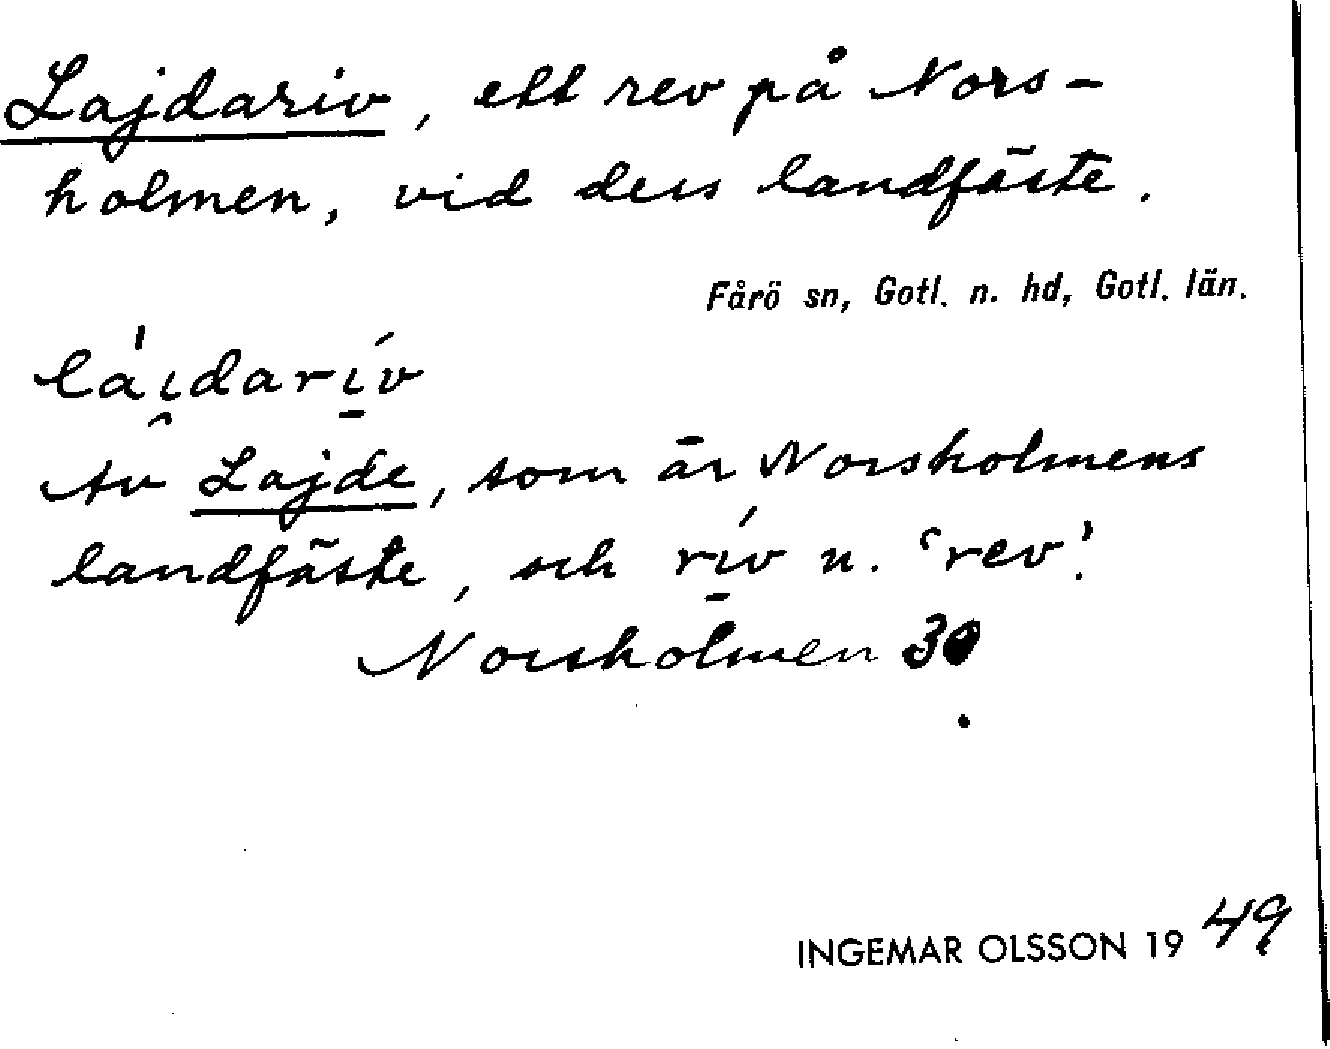 Lajdariv, ett rev på Nors-
holmen, vid dess landfäste.
Fårö sn, Gotl. n. hd, Gotl. län.
lá'ı̯darı̱́v
Av Lajde, som är Norsholmens
landfäste, och rı̱́v n. ‘rev’.
Norsholmen 30
INGEMAR OLSSON 1949